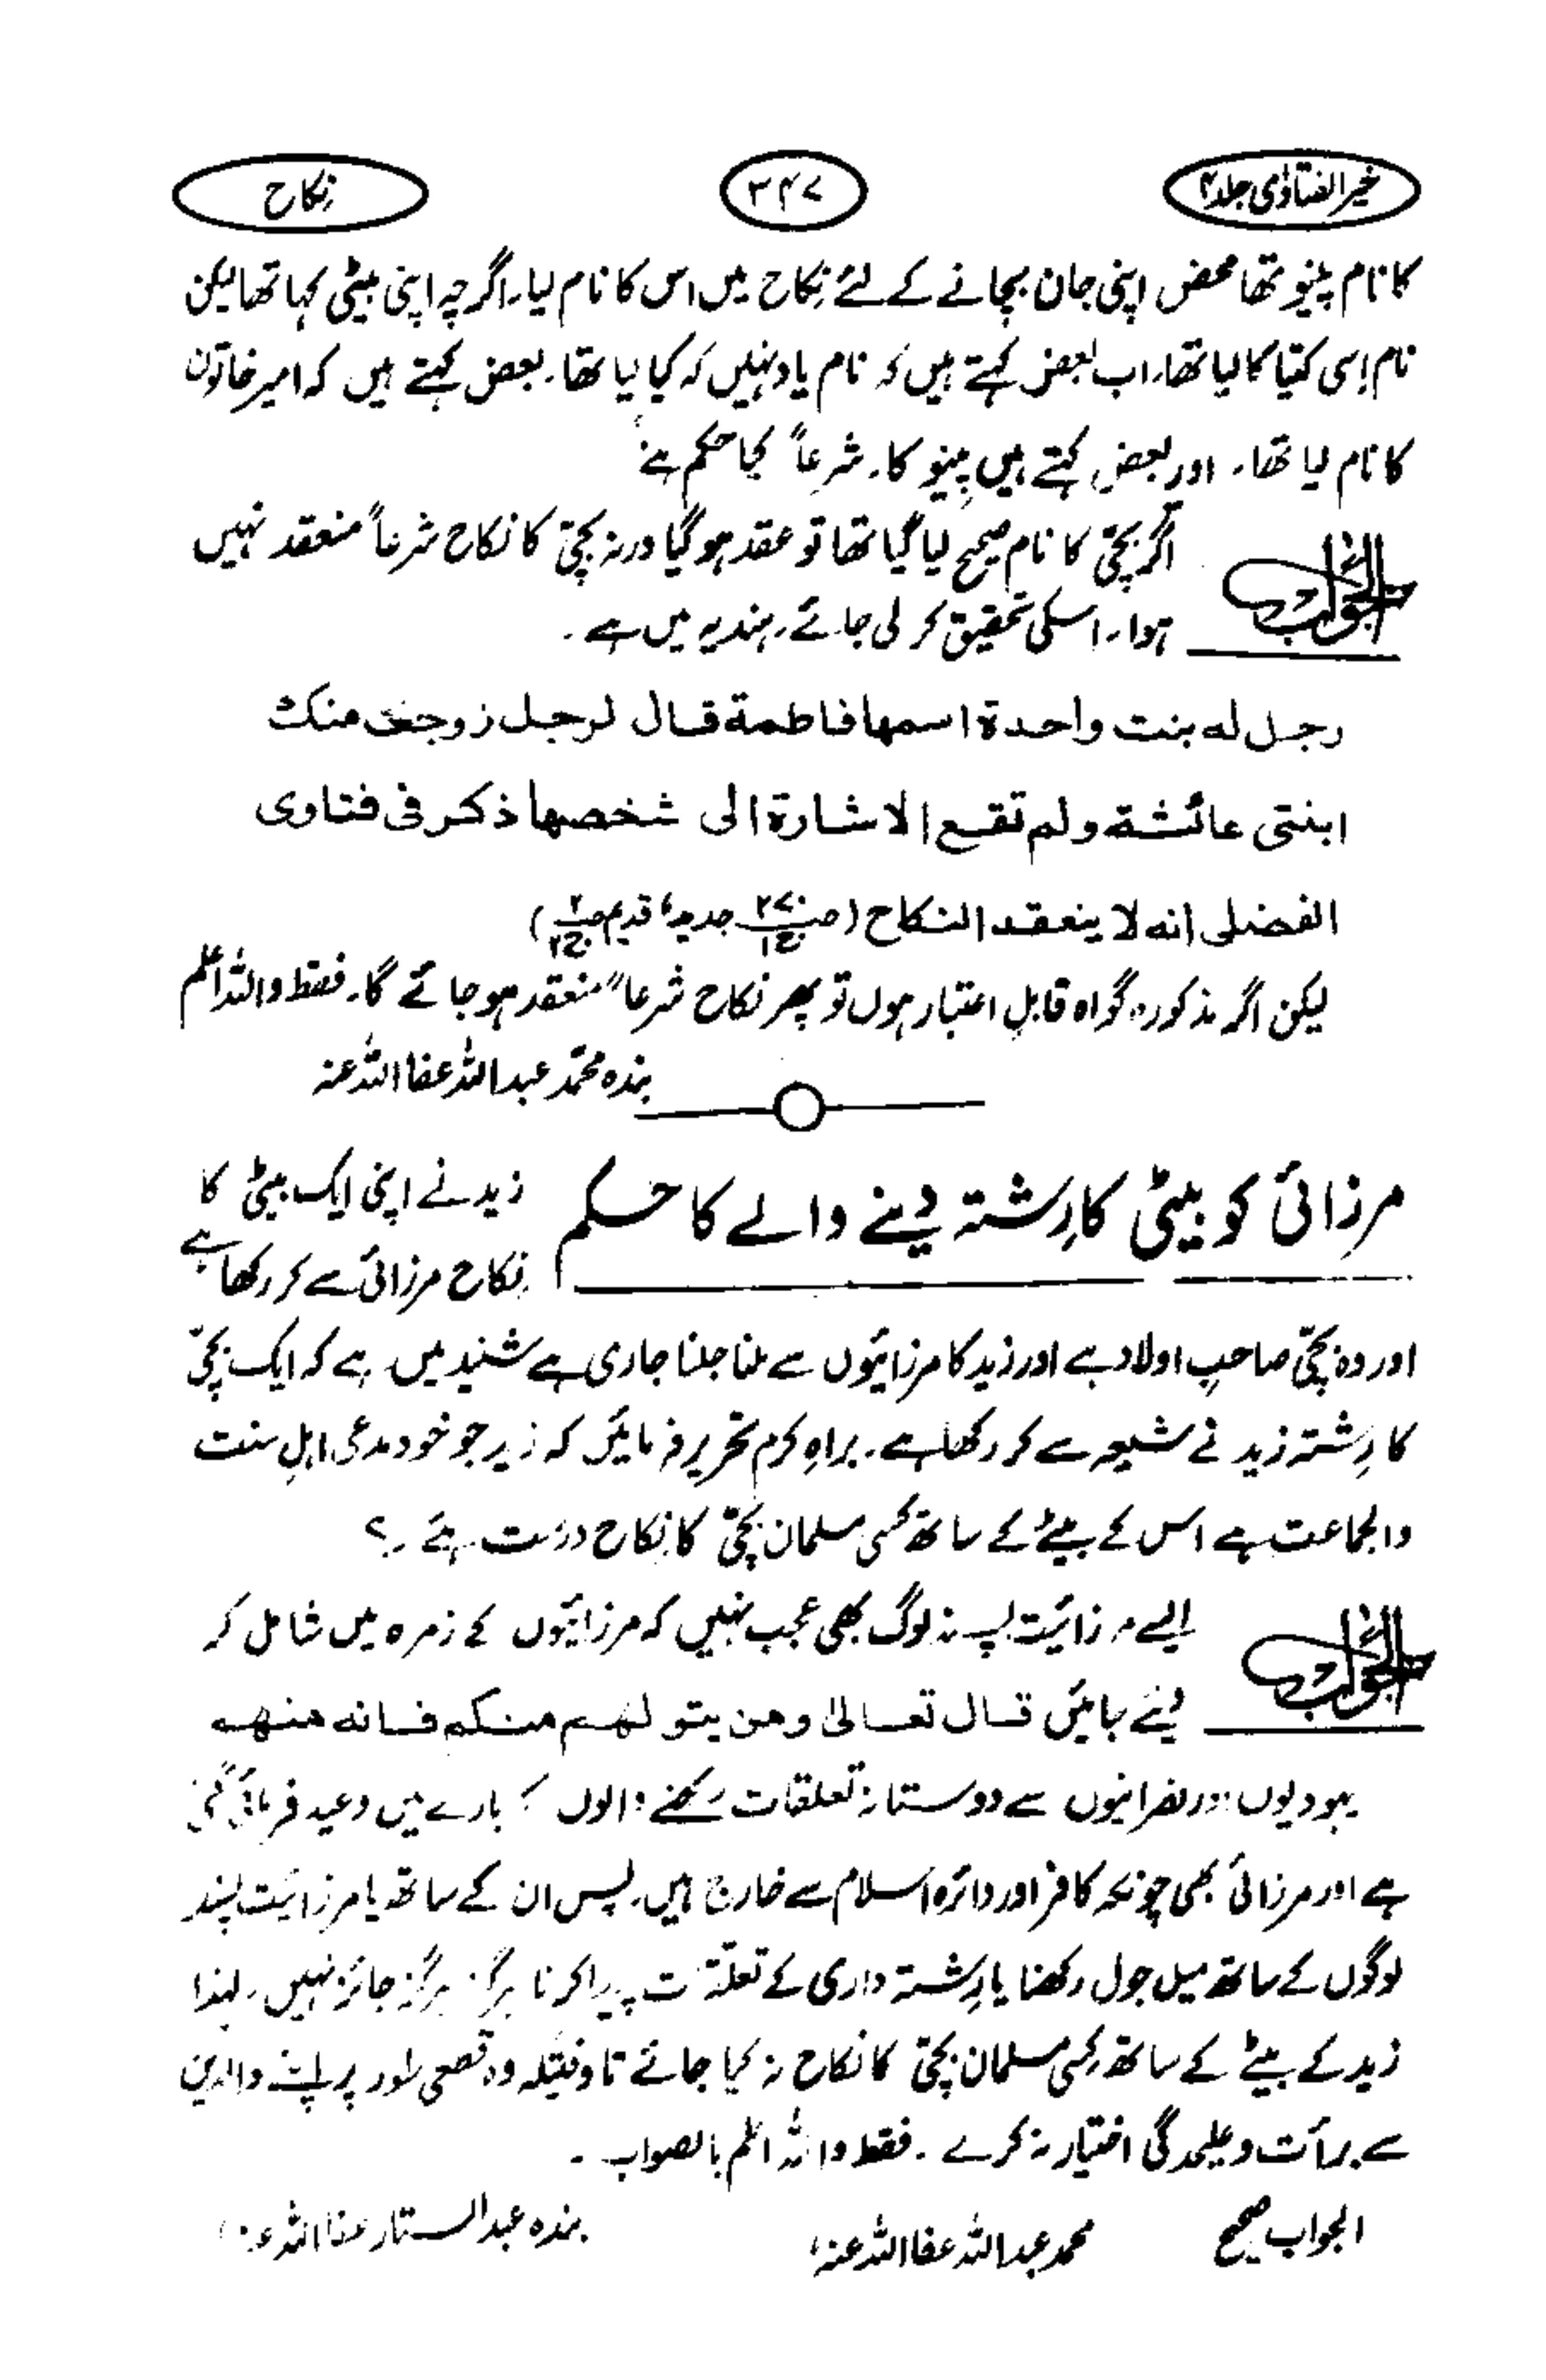 خیر الفتاوٰی جلد ۴
۳۴۷
نکاح
کا نام پینو تھا محض اپنی جان بچانے کے لئے نکاح میں اس کا نام لیا۔ اگرچہ اپنی بیٹی کہا تھا لیکن
نام اسی کتیا کا لیا تھا۔ اب بعض کہتے ہیں کہ نام یاد نہیں کہ کیا لیا تھا۔ بعض کہتے ہیں کہ امیر خاتون
کا نام لیا تھا۔ اور بعض کہتے ہیں پینو کا۔ شرعاً کیا حکم ہے
الجواب
اگر بچی کا نام صحیح لیا گیا تھا تو عقد ہو گیا ورنہ بچی کا نکاح شرعاً منعقد نہیں
ہوا۔ اسکی تحقیق کر لی جائے۔ ہندیہ میں ہے۔
رجل له بنت واحدة اسمها فاطمة قال لرجل زوجت منك
ابنتى عائشة ولم تقع الاشارة الى شخصها ذكر فى فتاوى
الفضلى انه لا ينعقد النكاح (ص۲۷۰ ج۱ جدید، قدیم ص۲ ج۲)
لیکن اگر مذکورہ گواہ قابل اعتبار ہوں تو پھر نکاح شرعاً منعقد ہو جائے گا۔ فقط واللہ اعلم
بندہ محمد عبداللہ عفا اللہ عنہ
مرزائی کو بیٹی کا رِشتہ دینے والے کا حکم
زید نے اپنی ایک بیٹی کا
نکاح مرزائی سے کر رکھا ہے
اور وہ بچی صاحبِ اولاد ہے اور زید کا مرزائیوں سے ملنا جلنا جاری ہے شنید میں ہے کہ ایک بچی
کا رِشتہ زید نے شیعہ سے کر رکھا ہے۔ براہِ کرم تحریر فرمائیں کہ زید جو خود مدعی اہلِ سنت
والجماعت ہے اس کے بیٹے کے ساتھ کسی مسلمان بچی کا نکاح درست ہے ؟
الجواب
ایسے مرزائیت پسند لوگ بھی عجب نہیں کہ مرزائیوں کے زمرہ میں شامل کر
لیئے جائیں قال تعالیٰ ومن يتولهم منكم فانه منهم
یہودیوں اور نصرانیوں سے دوستانہ تعلقات رکھنے والوں کے بارے میں وعید فرمائی گئی
ہے اور مرزائی بھی چونکہ کافر اور دائرہ اسلام سے خارج ہیں۔ پس ان کے ساتھ یا مرزائیت پسند
لوگوں کے ساتھ میل جول رکھنا یا رِشتہ داری کے تعلقات پیدا کرنا ہرگز ہرگز جائز نہیں۔ لہذا
زید کے بیٹے کے ساتھ کسی مسلمان بچی کا نکاح نہ کیا جائے تا وقتیکہ وہ قطعی طور پر اپنے والدین
سے برأت و علیحدگی اختیار نہ کرے۔ فقط واللہ اعلم بالصواب۔
الجواب صحیح
محمد عبداللہ عفا اللہ عنہ
بندہ عبدالستار عفا اللہ عنہ